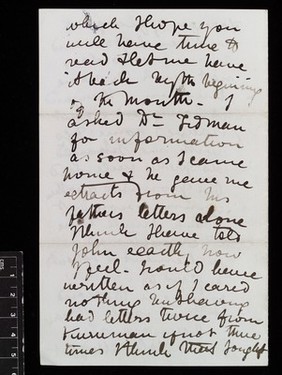 which I hope you
will have time to
read & let me have
it back by the beginning
of the month - I
asked Dr Tidman
for information
as soon as I came
home & he gave me
extracts from his
fathers letters alone
I think I have told
John exactly how
I feel. I could have
written as if I cared
nothing but having
had letters twice from
Kuruman if not three
times I think that